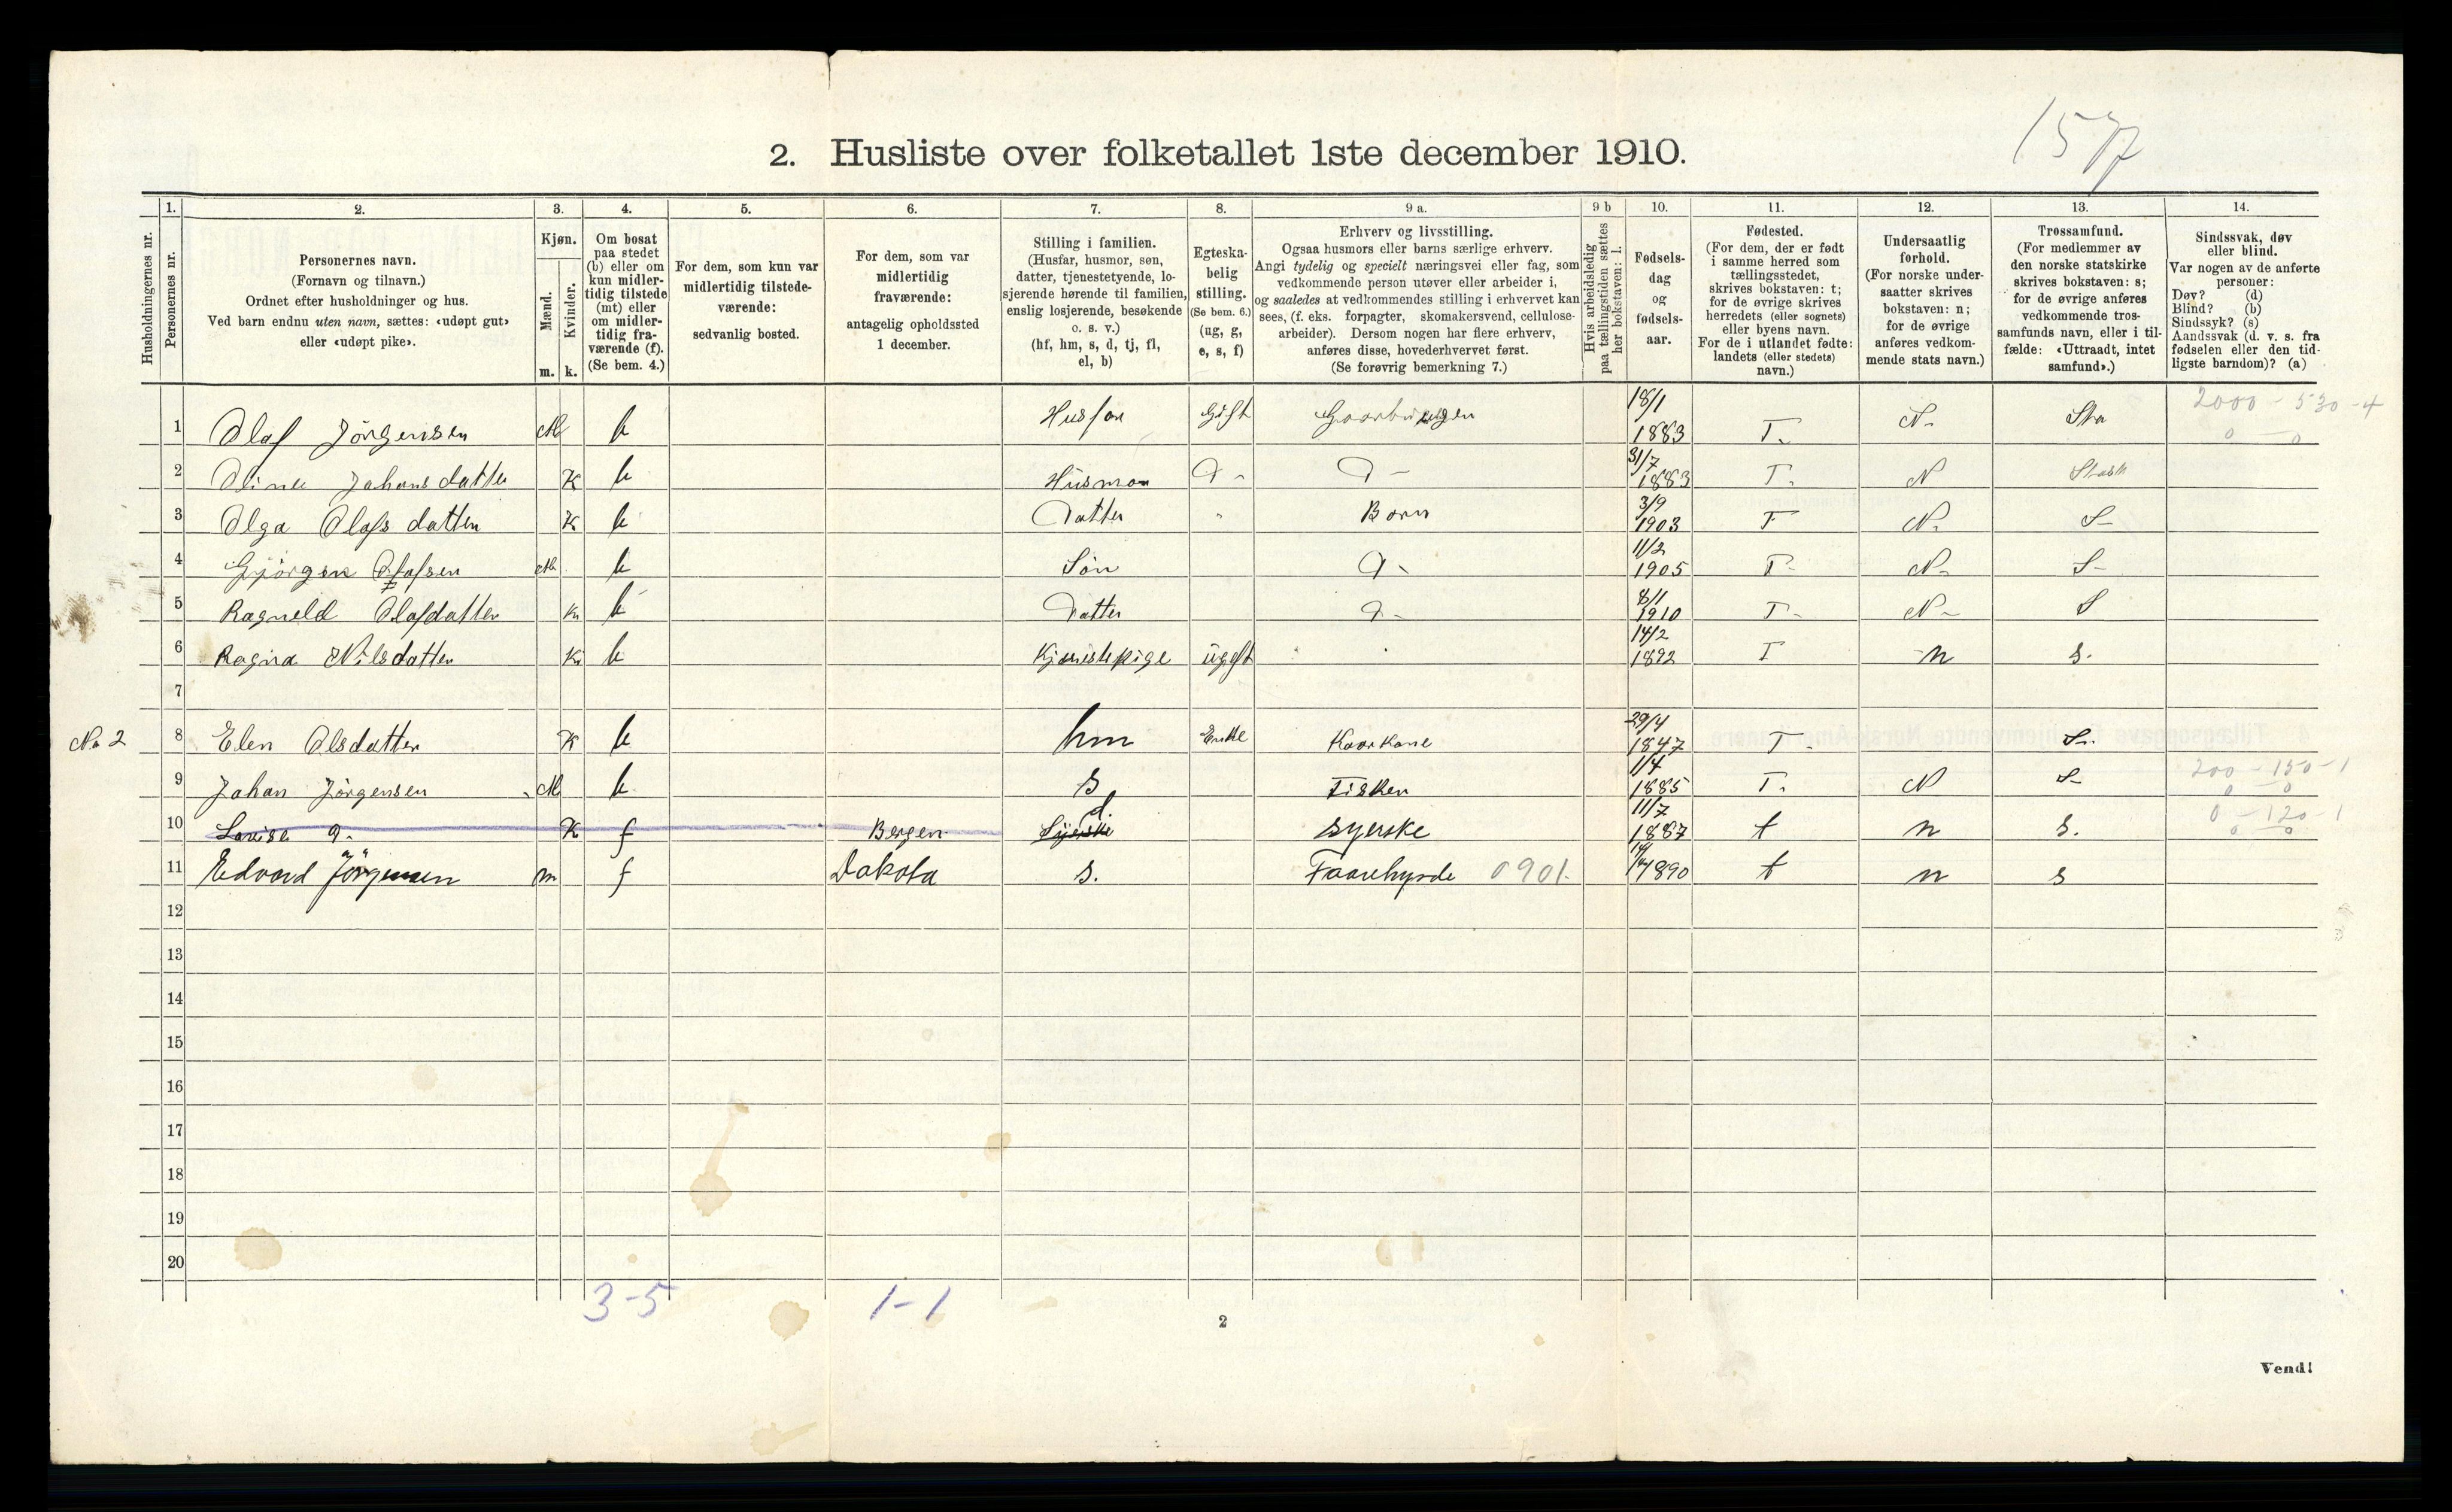 157
2. Husliste over folketallet 1ste december 1910.
Husholdningernes nr.
1. Personernes nr.
2. Personernes navn.
(Fornavn og tilnavn.)
Ordnet efter husholdninger og hus.
Ved barn endnu uten navn, sættes: «udøpt gut»
eller «udøpt pike».
3. Kjøn.
Mænd. m.
Kvinder. k.
4. Om bosat
paa stedet
(b) eller om
kun midler-
tidig tilstede
(mt) eller
om midler-
tidig fra-
værende (f).
(Se bem. 4.)
5. For dem, som kun var
midlertidig tilstede-
værende:
sedvanlig bosted.
6. For dem, som var
midlertidig
fraværende:
antagelig opholdssted
1 december.
7. Stilling i familien.
(Husfar, husmor, søn,
datter, tjenestetyende, lo-
sjerende hørende til familien,
enslig losjerende, besøkende
o. s. v.)
(hf, hm, s, d, tj, fl,
el, b)
8. Egteska-
belig
stilling.
(Se bem. 6.)
(ug, g,
e, s, f)
9 a. Erhverv og livsstilling.
Ogsaa husmors eller barns særlige erhverv.
Angi tydelig og specielt næringsvei eller fag, som
vedkommende person utøver eller arbeider i,
og saaledes at vedkommendes stilling i erhvervet kan
sees, (f. eks. forpagter, skomakersvend, cellulose-
arbeider). Dersom nogen har flere erhverv,
anføres disse, hovederhvervet først.
(Se forøvrig bemerkning 7.)
9 b Hvis arbeidsledig
paa tællingstiden sættes
her bokstaven: l.
10. Fødsels-
dag
og
fødsels-
aar.
11. Fødested.
(For dem, der er født
i samme herred som
tællingsstedet,
skrives bokstaven: t;
for de øvrige skrives
herredets (eller sognets)
eller byens navn.
For de i utlandet fødte:
landets (eller stedets)
navn.)
12. Undersaatlig
forhold.
(For norske under-
saatter skrives
bokstaven: n;
for de øvrige
anføres vedkom-
mende stats navn.)
13. Trossamfund.
(For medlemmer av
den norske statskirke
skrives bokstaven: s;
for de øvrige anføres
vedkommende tros-
samfunds navn, eller i til-
fælde: «Uttraadt, intet
samfund».)
14. Sindssvak, døv
eller blind.
Var nogen av de anførte
personer:
Døv? (d)
Blind? (b)
Sindssyk? (s)
Aandssvak (d. v. s. fra
fødselen eller den tid-
ligste barndom)? (a)
1 Olaf Jörgensen M b Husfar Gift Gaarbrugen 18/1 1883 T. N. Sta 2000 - 530 - 4
0 - 0
2 Oline Johansdatter K b Husmor D - D - 31/7 1883 T. N
3 Olga Olafsdatter K b Datter " Born 3/9 1903 T N. S-
4 Gjörgen Olafsen M. b Sön D- 11/2 1905 T- N- S-
5 Ragneld Olafdatter K b Datter D- 8/11 1910 T- N- S
6 Ragna Nilsdatter K b ugift 14/2 1892 T n s.
7
No 2 8 Elen Olsdatter K b hm Enke Kaarkone 29/4 1847 T- S.
9 Johan Jörgensen M b s Fisker 1/4 1885 T. N S- 200 - 150 - 1
0 - 0
10 Lovise D. K f Bergen Syerske d. syerske 11/7 1887 t n s. 0 - 120 - 1
0 - 0
11 Edvard Jörgensen m f Dakota s. Faarehyrde 0901. 1890 t n s
12
13
14
15
16
17
18
19
20
3-5 1-1
2
Vend!